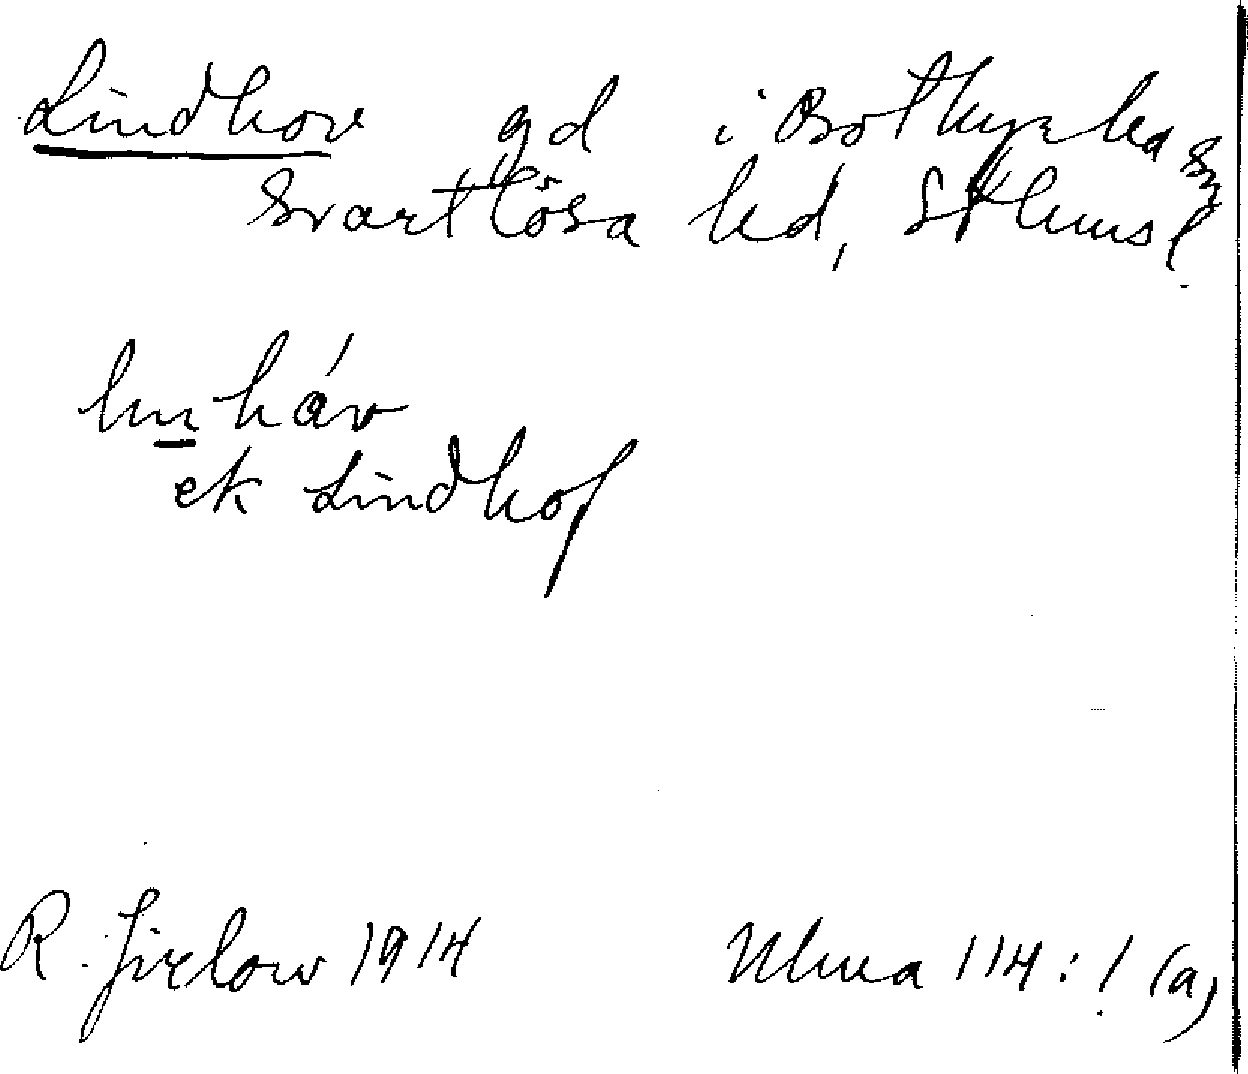 Lindhov gd i Botkyrka sn
Svartlösa hd, Sthms l.
linháv
ek Lindhof
R. Jirlow 1914 Ulma 114:1 (a)